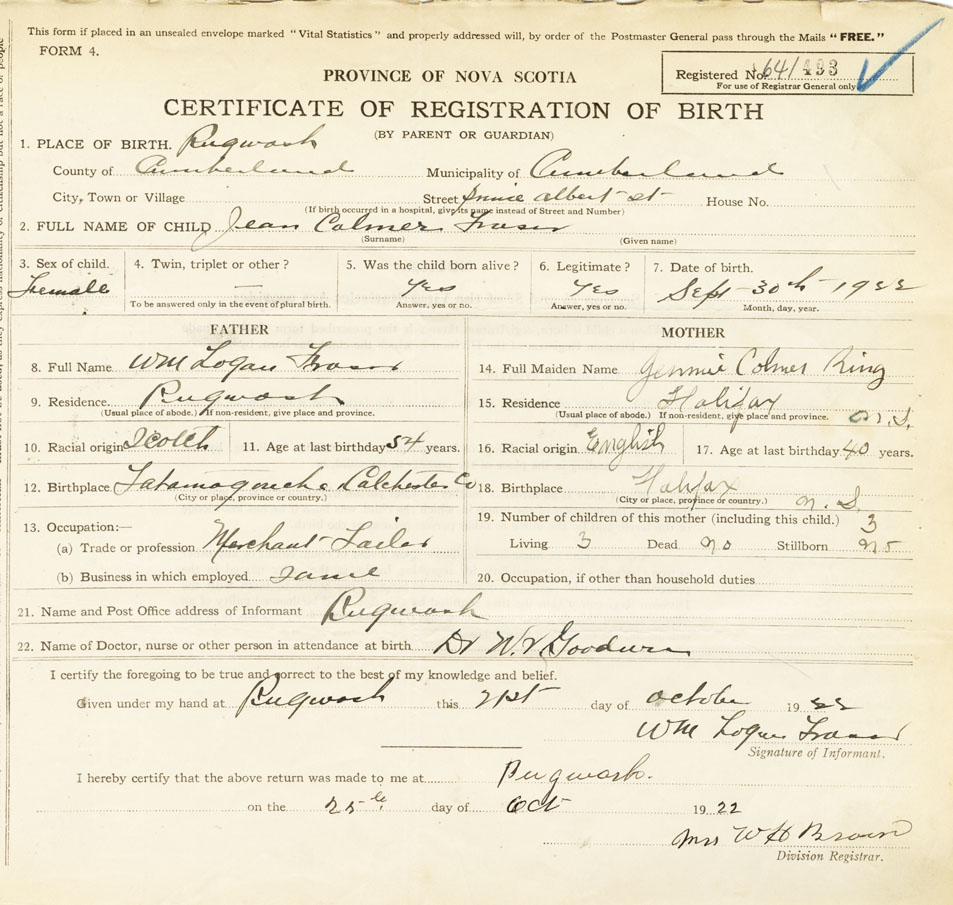 This form if placed in an unsealed envelope marked "Vital Statistics" and properly addressed will, by order of the Postmaster General pass through the Mails "FREE."
FORM 4.
PROVINCE OF NOVA SCOTIA
Registered No. 64/493
For use of Registrar General only
CERTIFICATE OF REGISTRATION OF BIRTH
(BY PARENT OR GUARDIAN)
1. PLACE OF BIRTH. Pugwash
County of Cumberland Municipality of Cumberland
City, Town or Village Street albert st House No.
(If birth occurred in a hospital, give its name instead of Street and Number)
2. FULL NAME OF CHILD Jean Colmer Fraser
(Surname) (Given name)
3. Sex of child. 4. Twin, triplet or other? 5. Was the child born alive? 6. Legitimate? 7. Date of birth.
Female — Yes Yes Sept 30th 1922
To be answered only in the event of plural birth. Answer, yes or no. Answer, yes or no. Month, day, year.
FATHER MOTHER
8. Full Name Wm Logan Fraser
14. Full Maiden Name Jennie Colmer King
9. Residence. Pugwash
(Usual place of abode.) If non-resident, give place and province.
15. Residence Halifax N.S.
(Usual place of abode.) If non-resident, give place and province.
10. Racial origin Scotch 11. Age at last birthday 54 years.
16. Racial origin English 17. Age at last birthday 40 years.
12. Birthplace Tatamagouche Colchester Co
(City or place, province or country.)
18. Birthplace Halifax N.S.
(City or place, province or country.)
13. Occupation:—
(a) Trade or profession Merchant Tailor
(b) Business in which employed Same
19. Number of children of this mother (including this child.) 3
Living 3 Dead no Stillborn no
20. Occupation, if other than household duties
21. Name and Post Office address of Informant Pugwash
22. Name of Doctor, nurse or other person in attendance at birth Dr Goodwin
I certify the foregoing to be true and correct to the best of my knowledge and belief.
Given under my hand at Pugwash this 21st day of October 1922
Wm Logan Fraser
Signature of Informant.
I hereby certify that the above return was made to me at Pugwash.
on the 25th day of Oct 1922
Mrs W H Brown
Division Registrar.